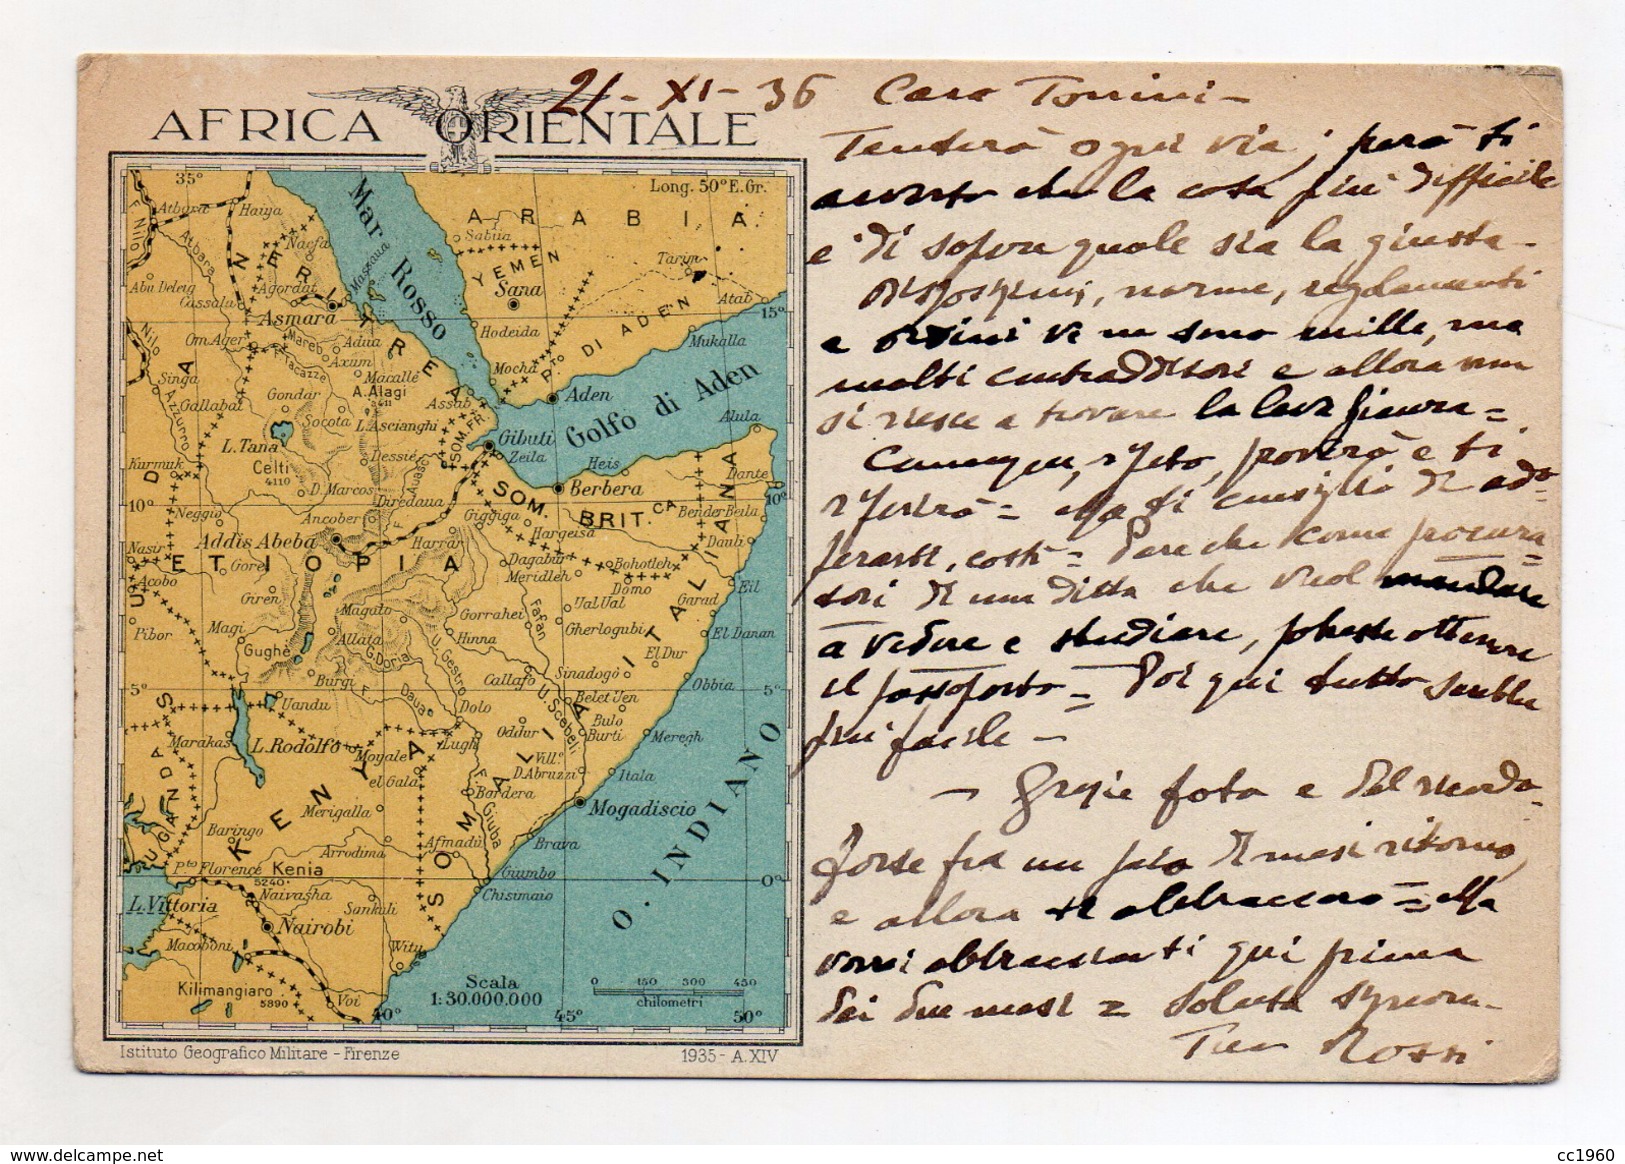 AFRICA ORIENTALE
21-XI-36 Caro Tonini-
Tenterò ogni via; però ti
avverto che la cosa più difficile
è di sapere quale sia la giusta-
Disposizioni, norme, regolamenti
e ordini ve ne sono mille, ma
molti contraddittori e allora non
si riesce a trovare la
proverò e ti
= Ma ti consiglio di ado=
perarti, costì = Pare che come procura=
tori di una ditta che vuol mandare
a vedere e studiare, potreste ottenere
il passaporto = Poi qui tutto sembra
più facile -
- Grazie foto e del ricordo-
Forse fra un paio di mesi ritorno,
e allora ti abbraccerò = Ma
vorrei abbracciarti qui prima
dei due mesi = Saluta Signora-
Tuo Rossi
35°
Long. 50° E. Gr.
Mar Rosso
ARABIA
YEMEN
Sabiia
Sana
Tarim
Atab
15°
Hodeida
Mocha
P.to DI ADEN
Mukalla
Aden
Golfo di Aden
Alula
Atbara
Haiya
F. Nilo
Atbara
Nacfa
Abu Deleig
Cassala
Agordat
Massaua
Asmara
ERITREA
Nilo
Om Ager
Mareb
Adua
Axum
Tacazze
Macallé
A. Alagi
3411
Singa
Gallabat
Gondar
Socota
L. Ascianghi
Assab
Azzurro
L. Tana
SOM. FR.
Gibuti
Zeila
Heis
Berbera
Dante
10°
Kurmuk
Celti
4110
Dessiè
D. Marcos
Auasc
Diredaua
SOM. BRIT.CA
Bender Beila
Neggio
Ancober
Giggiga
Hargeisa
Nasir
Addis Abeba
Harrar
Daub
SUDAN
ETIOPIA
Gore
Dagabur
Bohotleh
Acobo
Meridleh
Domo
Eil
Giren
Magalo
Gorrahei
Ual Ual
Garad
Fafan
Pibor
Magi
Allata
Hinna
Gherlogubi
El Danan
Gughè
G. Doria
U. Gestro
El Dur
Sinadogò
5°
Burgi
F. Daua
Callafo
U. Scebeli
Obbia
Uandu
Dolo
Belet Uen
Marakas
Oddur
Bulo Burti
Meregh
L. Rodolfo
Moyale
Lugh
Vill.o D. Abruzzi
el Gala
Itala
UGANDA
KENYA
F. Giuba
Bardera
Merigalla
Mogadiscio
SOMALIA ITALIANA
Baringo
Afmadù
Arrodima
Brava
P.to Florence
Kenia
5240
Giumbo
0°
Naivasha
Chisimaio
L. Vittoria
Sankuli
Nairobi
Macoboni
Witu
O. INDIANO
Kilimangiaro
5890
Voi
Scala
1:30.000.000
0 150 300 450
chilometri
40°
45°
50°
Istituto Geografico Militare - Firenze
1935 - A. XIV
www.delcampe.net
cc1960